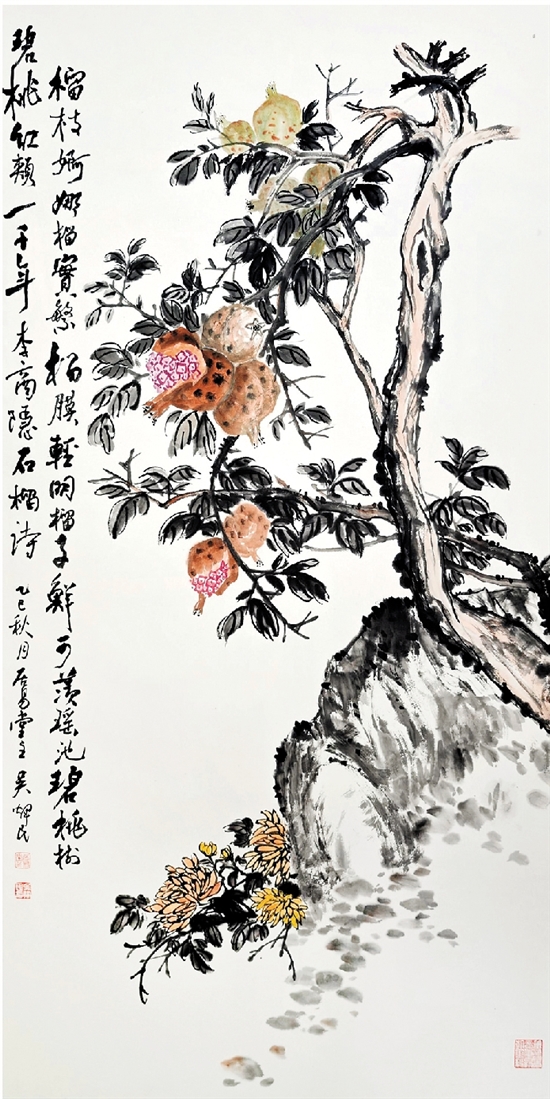 榴枝婀娜榴實繁榴膜輕明榴子鮮可羨瑤池碧桃樹
碧桃紅頰一千年李商隱石榴詩
乙巳秋月居易堂主吴輝民